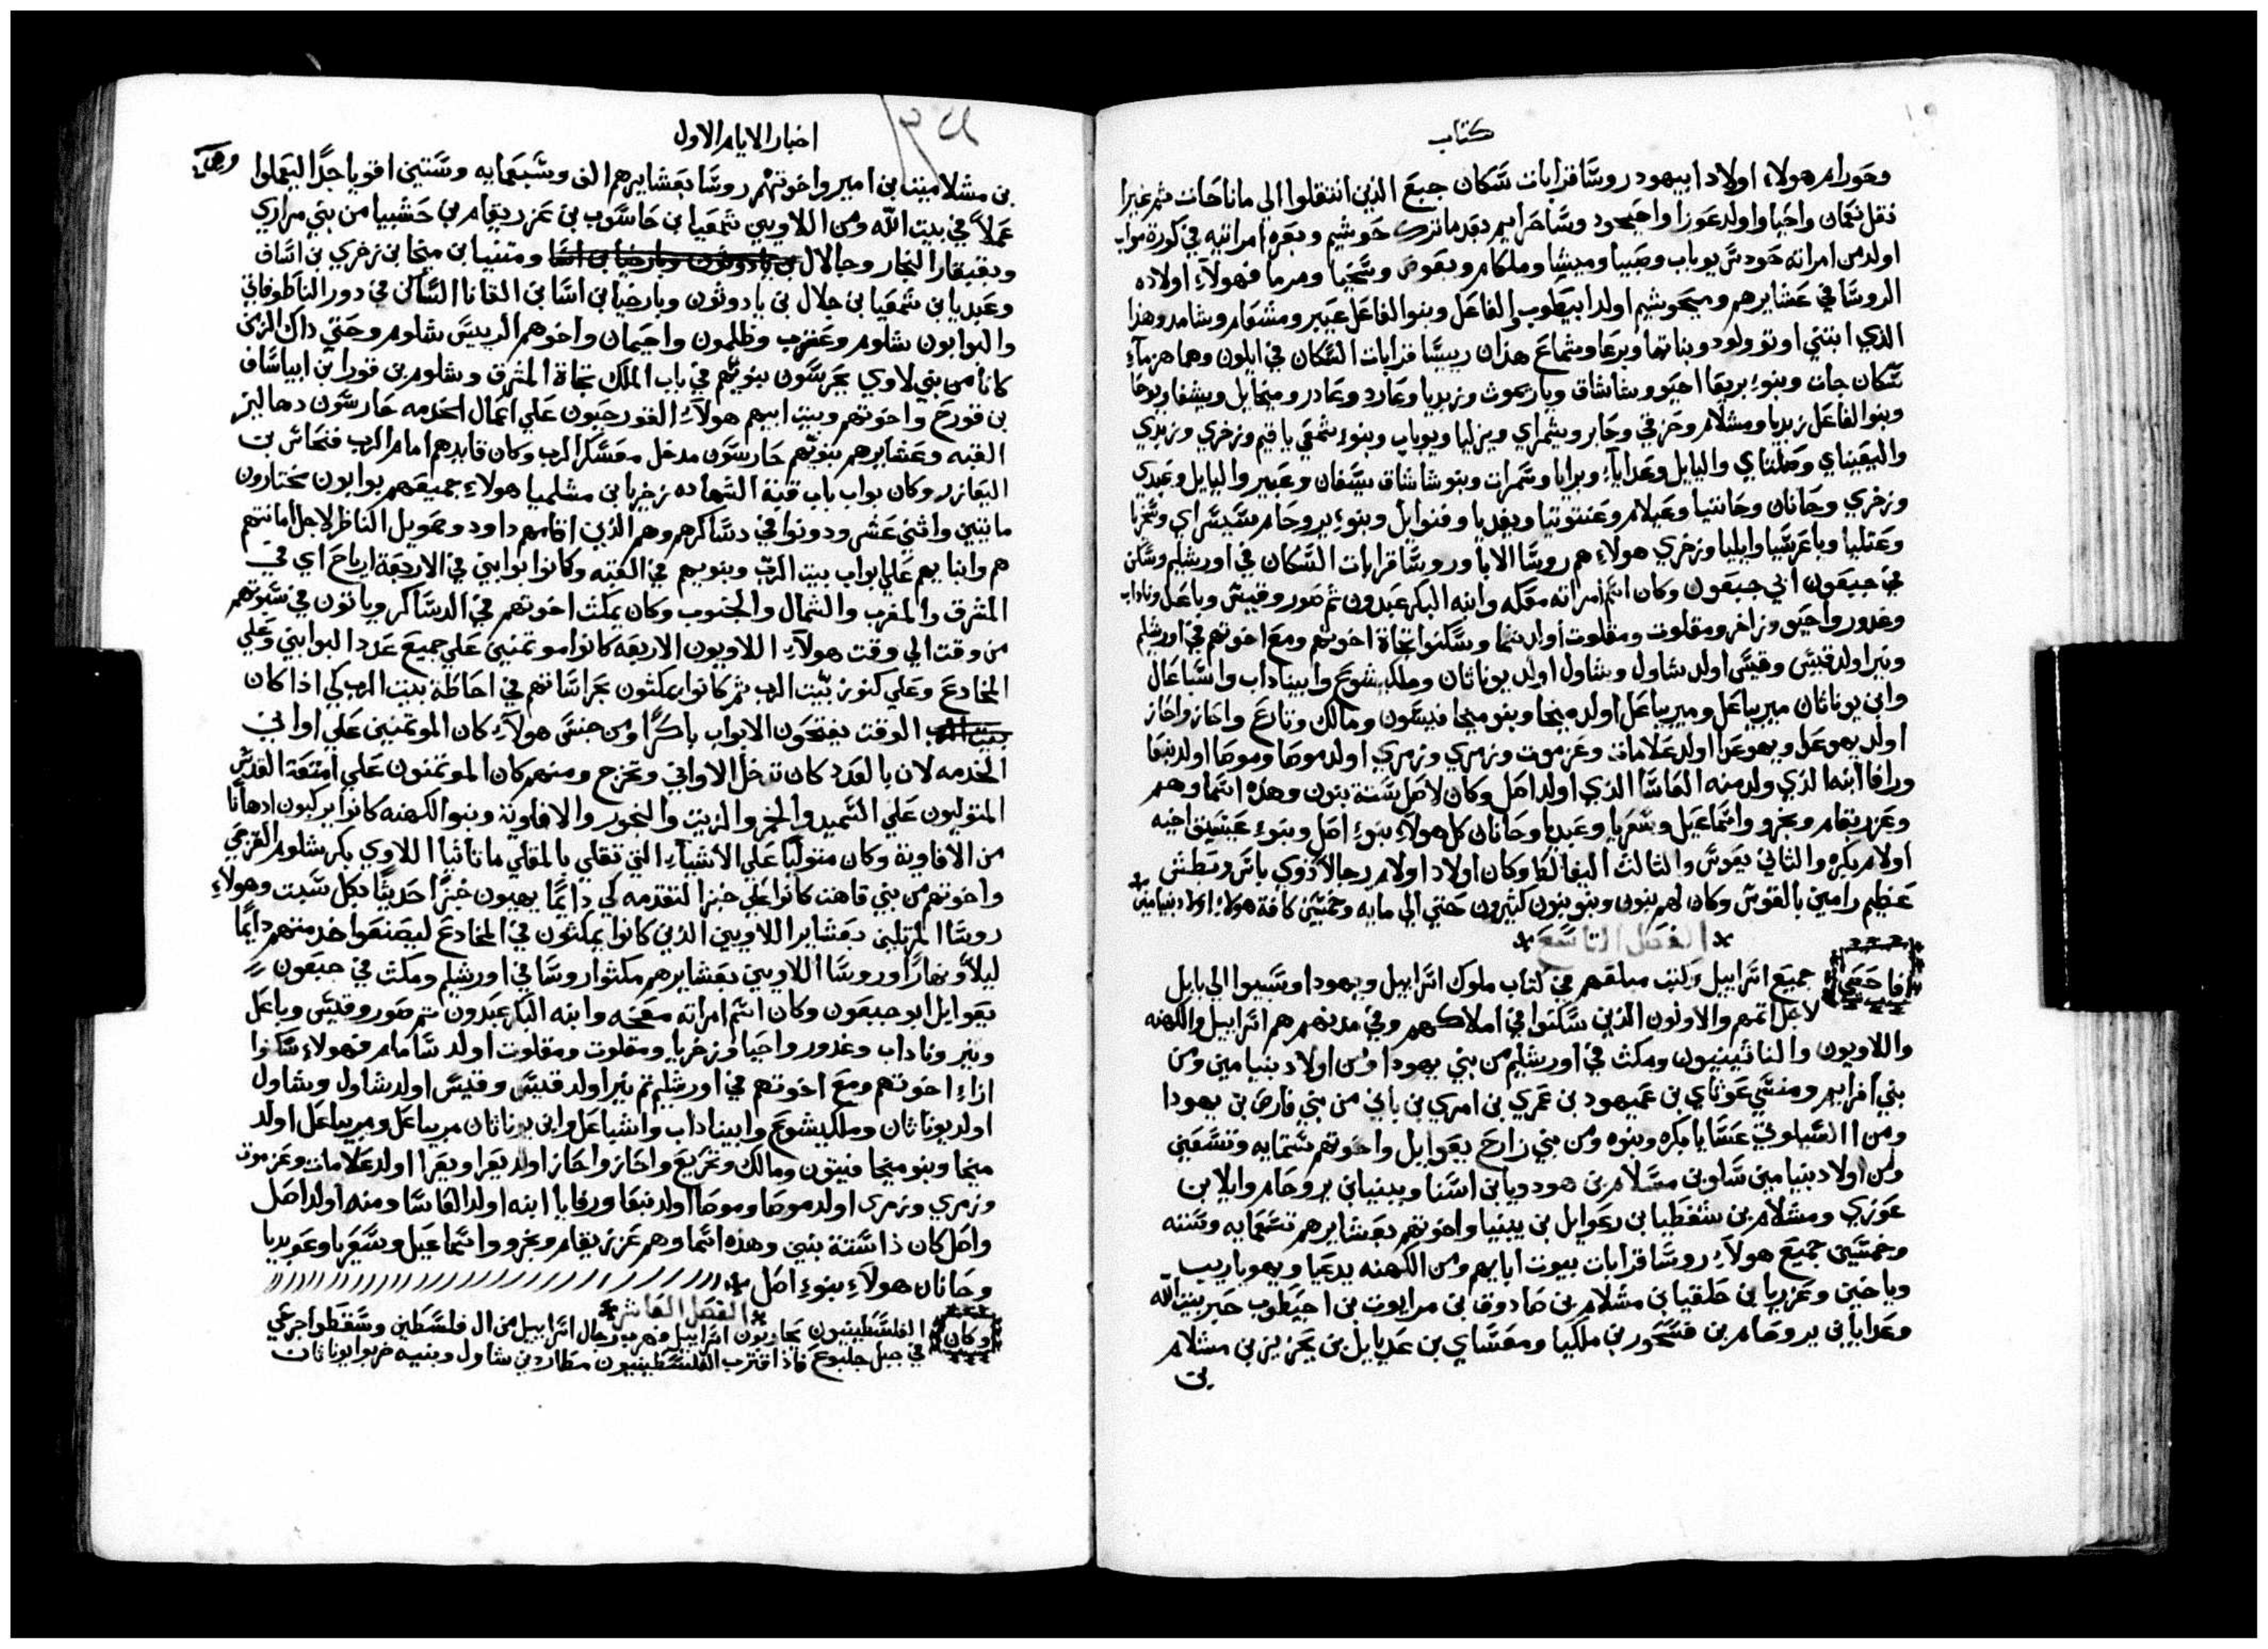 كتاب
وحورام هولاء اولاد ابيهود روسا قرابات سكان جبع الذين انتقلوا الي ماناحات ثم غيرا
نقل نعمان واحيا واولد عوزا واحيحود وساحرايم بعد ما ترك حوشيم وبعره امراتيه في كورة مواب
اولد من امراته حودس يوباب وصبيا وميشا وملكام ويعوص وشخيا ومرما فهولاء اولاده
الروسا في عشايرهم وميحوشيم اولد ابيطوب والفاعل وبنوا الفاعل عيبر ومشعام وشامد وهذا
الذي ابتني اونو ولود وبناتها وبرعا وشماع هذان رييسا قرابات السكان في ايلون وهما هزما
سكان جات وبنو بريعا احيو وشاشاق وياريموث وزبديا وعارد وعادر وميخايل ويشفا ويوحا
وبنوا الفاعل زبديا ومشلام وحزقي وحابر ويشمراي ويزليا ويوباب وبنو شمعي ياقيم وزخري وزبدي
واليعيناي وصلتاي واليايل وعدايا وبرايا وشمرات وبنو شاشاق يشفان وعيبر واليايل وعبدي
وزخري وحانان وحانتيا وعيلام وعنتوتيا ويفديا وفنوايل وبنو يروحام شمشراي وشحريا
وعتليا وياعرسيا وايليا وزخري هولاء هم روسا الابا وروسا قرابات السكان في اورشليم وسكن
في جبعون ابي جبعون وكان اسم امراته معكه وابنه البكر عبدون ثم صور وقيش وباعل وناداب
وغدور واحيو وزاخر ومقلوت ومقلوت اولد شما وسكنوا تجاة اخوتهم ومع اخوتهم في اورشليم
ونير اولد قيس وقيس اولد شاول وشاول اولد يوناثان وملكيشوع وابيناداب واسباعال
وابن يوناثان ميريباعل وميريباعل اولد ميخا وبنو ميخا فيسون ومالك وتارع واحاز واحاز
اولد يهوعدا ويهوعدا اولد علامات وعزموت وزمري وزمري اولد موصا وموصا اولد نبعا
ورافا ابنه الذي ولد منه العاسا الذي اولد اصل وكان لاصل ستة بنون وهذه اسماوهم
وعزريقام وبخرو واسماعيل وشعريا وعبديا وحانان كل هولاء بنو اصل وبنو عيشيق اخيه
اولام بكره والثاني يعوس والثالث اليفالط وكان اولاد اولام رجالا ذوي باس وبطش
عظيم رامين بالقوس وكان لهم بنون وبنو بنون كثيرون حتي الي مايه وخمسين كافة هولاء اولاد بنيامين
* الفصل التاسع *
فاحصي جميع اسراييل وكتب مبلغهم في كتاب ملوك اسراييل ويهودا وسبيوا الي بابل
لاجل اثمهم والاولون الذين سكنوا في املاكهم وفي مدنهم هم اسراييل والكهنه
واللاويون والناثينيون ومكث في اورشليم من بني يهودا ومن اولاد بنيامين ومن
بني افرايم ومنسي عوثاي بن عميهود بن عمري بن امري بن باني من بني فارص بن يهودا
ومن السيلوني عسايا بكره وبنوه ومن بني زارح يعوايل واخوتهم ستمايه وتسعين
ومن اولاد بنيامين سلو بن مشلام بن هودويا بن اسنا ويبنيا بن يروحام وايلا بن
عوزي ومشلام بن شفطيا بن رعوايل بن يبنيا واخوتهم بعشايرهم تسعمايه وستة
وخمسين جميع هولاء روسا قرابات بيوت ابايهم ومن الكهنه يدعيا ويهوياريب
وياخين وعزريا بن حلقيا بن مشلام بن صادوق بن مرايوت بن احيطوب حبر بيت الله
وعدايا بن يروحام بن فشحور بن ملكيا ومعساي بن عديايل بن يحزيز بن مشلام
بن
اخبار الايام الاول
بن مشلاميت بن امير واخوتهم روسا بعشايرهم الف وسبعمايه وستين اقويا جدا ليعملوا
عملا في بيت الله ومن اللاويين شمعيا بن حاسوب بن عزريقام بن حشبيا من بني مراري
وبقبقار النجار وجالال ومتنيا بن ميخا بن زخري بن اساف
وعبديا بن شمعيا بن جلال بن يادوثون وبارخيا بن اسا بن القانا الساكن في دور الناطوفاتي
والبوابون شلوم وعقوب وطلمون واحيمان واخوهم الرييس شلوم وحتي ذاك الزمن
كانا من بني لاوي يحرسون بنوبتهم في باب الملك تجاة المشرق وشلوم بن قورا بن ابياساف
بن قورح واخوته وبيت ابيهم هولاء القورحيون علي اعمال الخدمه حارسون دهاليز
القبه وعشايرهم بنوبتهم حارسون مدخل معسكر الرب وكان قايدهم امام الرب فنحاس بن
اليعازر وكان بواب باب قبة الشهاده زخريا بن مشلميا هولاء جميعهم بوابون مختارون
مايتين واثني عشر ودونوا في دساكرهم وهم الذين اقامهم داود وصمويل الناظر لاجل امانتهم
هم وابنايهم علي ابواب بيت الرب وبنوبهم في القبه وكانوا بوابين في الاربعة ارياح اي في
المشرق والمغرب والشمال والجنوب وكان يمكث اخوتهم في الدساكر وياتون في سبوتهم
من وقت الي وقت هولاء اللاويون الاربعه كانوا موتمنين علي جميع عدد البوابين وعلي
المخادع وعلي كنوز بيت الرب ثم كانوا يمكثون بحراساتهم في احاطة بيت الرب كي اذا كان
الوقت يفتحون الابواب باكرا ومن جنس هولاء كان الموتمنين علي اواني
الخدمه لان بالعدد كان تدخل الاواني وتخرج ومنهم كان الموتمنون علي امتعة القدس
المتوليون علي السميد والخمر والزيت والبخور والافاوية وبنوا الكهنه كانوا يركبون ادهانا
من الافاوية وكان متوليا علي الاشياء التي تقلي بالمقلي ماناثيا اللاوي بكر شلوم القرحي
واخوتهم من بني قاهت كانوا علي خبز التقدمه كي دايما يهيون خبزا حديثا بكل سبت وهولاء
روسا المرتلين بعشاير اللاويين الذين كانوا يمكثون في المخادع ليصنعوا خدمتهم دايما
ليلا ونهارا وروسا اللاويين بعشايرهم مكثوا روسا في اورشليم ومكث في جبعون
يعوايل ابو جبعون وكان اسم امراته معخه وابنه البكر عبدون ثم صور وقيش وباعل
ونير وناداب وغدور واحيا وزخريا ومقلوت ومقلوت اولد سامام فهولاء سكنوا
ازاء اخوتهم ومع اخوتهم في اورشليم ثم نير اولد قيس وقيس اولد شاول وشاول
اولد يوناثان وملكيشوع وابيناداب واشباعل وابن يوناثان مريباعل ومريباعل اولد
ميخا وبنو ميخا فيثون ومالك وتحريع واحاز واحاز اولد يعرا ويعرا اولد علامات وعزموت
وزمري وزمري اولد موصا وموصا اولد نبعا ورفايا ابنه اولد العاسا ومنه اولد اصل
واصل كان ذا ستة بنين وهذه اسماوهم عزريقام وبخرو واسماعيل وشعريا وعوبديا
وحانان هولاء بنو اصل *
* الفصل العاشر *
وكان الفلسطينيون يحاربون اسراييل وهربت رجال اسراييل من الفلسطين وسقطوا جرحي
في جبل جلبوع فاذ اقترب الفلسطينيون مطاردين شاول وبنيه ضربوا يوناثان